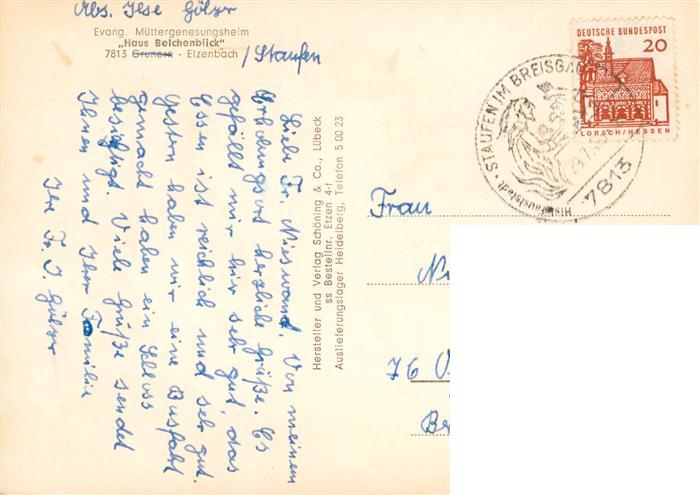 Abs. Ilse Gölzer
Evang. Müttergenesungsheim
„Haus Belchenblick"
7813 Grunern - Etzenbach /Staufen
Liebe Fr. Nieswand. Von meinem
Erholungsort herzliche Grüße. Es
gefällt mir hir sehr gut, das
Essen ist reichlich und sehr gut.
Gestern haben wir eine Busfahrt
gemacht haben ein Schloss
besichtigt. Viele Grüße sendet
Ihnen und Ihrer Familie
Ihre Fr. I. Gölzer
Hersteller und Verlag Schöning & Co., Lübeck
ss Bestellnr. Etzen 4-1
Auslieferungslager Heidelberg, Telefon 5 00 23
DEUTSCHE BUNDESPOST
20
LORSCH/HESSEN
STAUFEN IM BREISGAU
7813
Frau
76